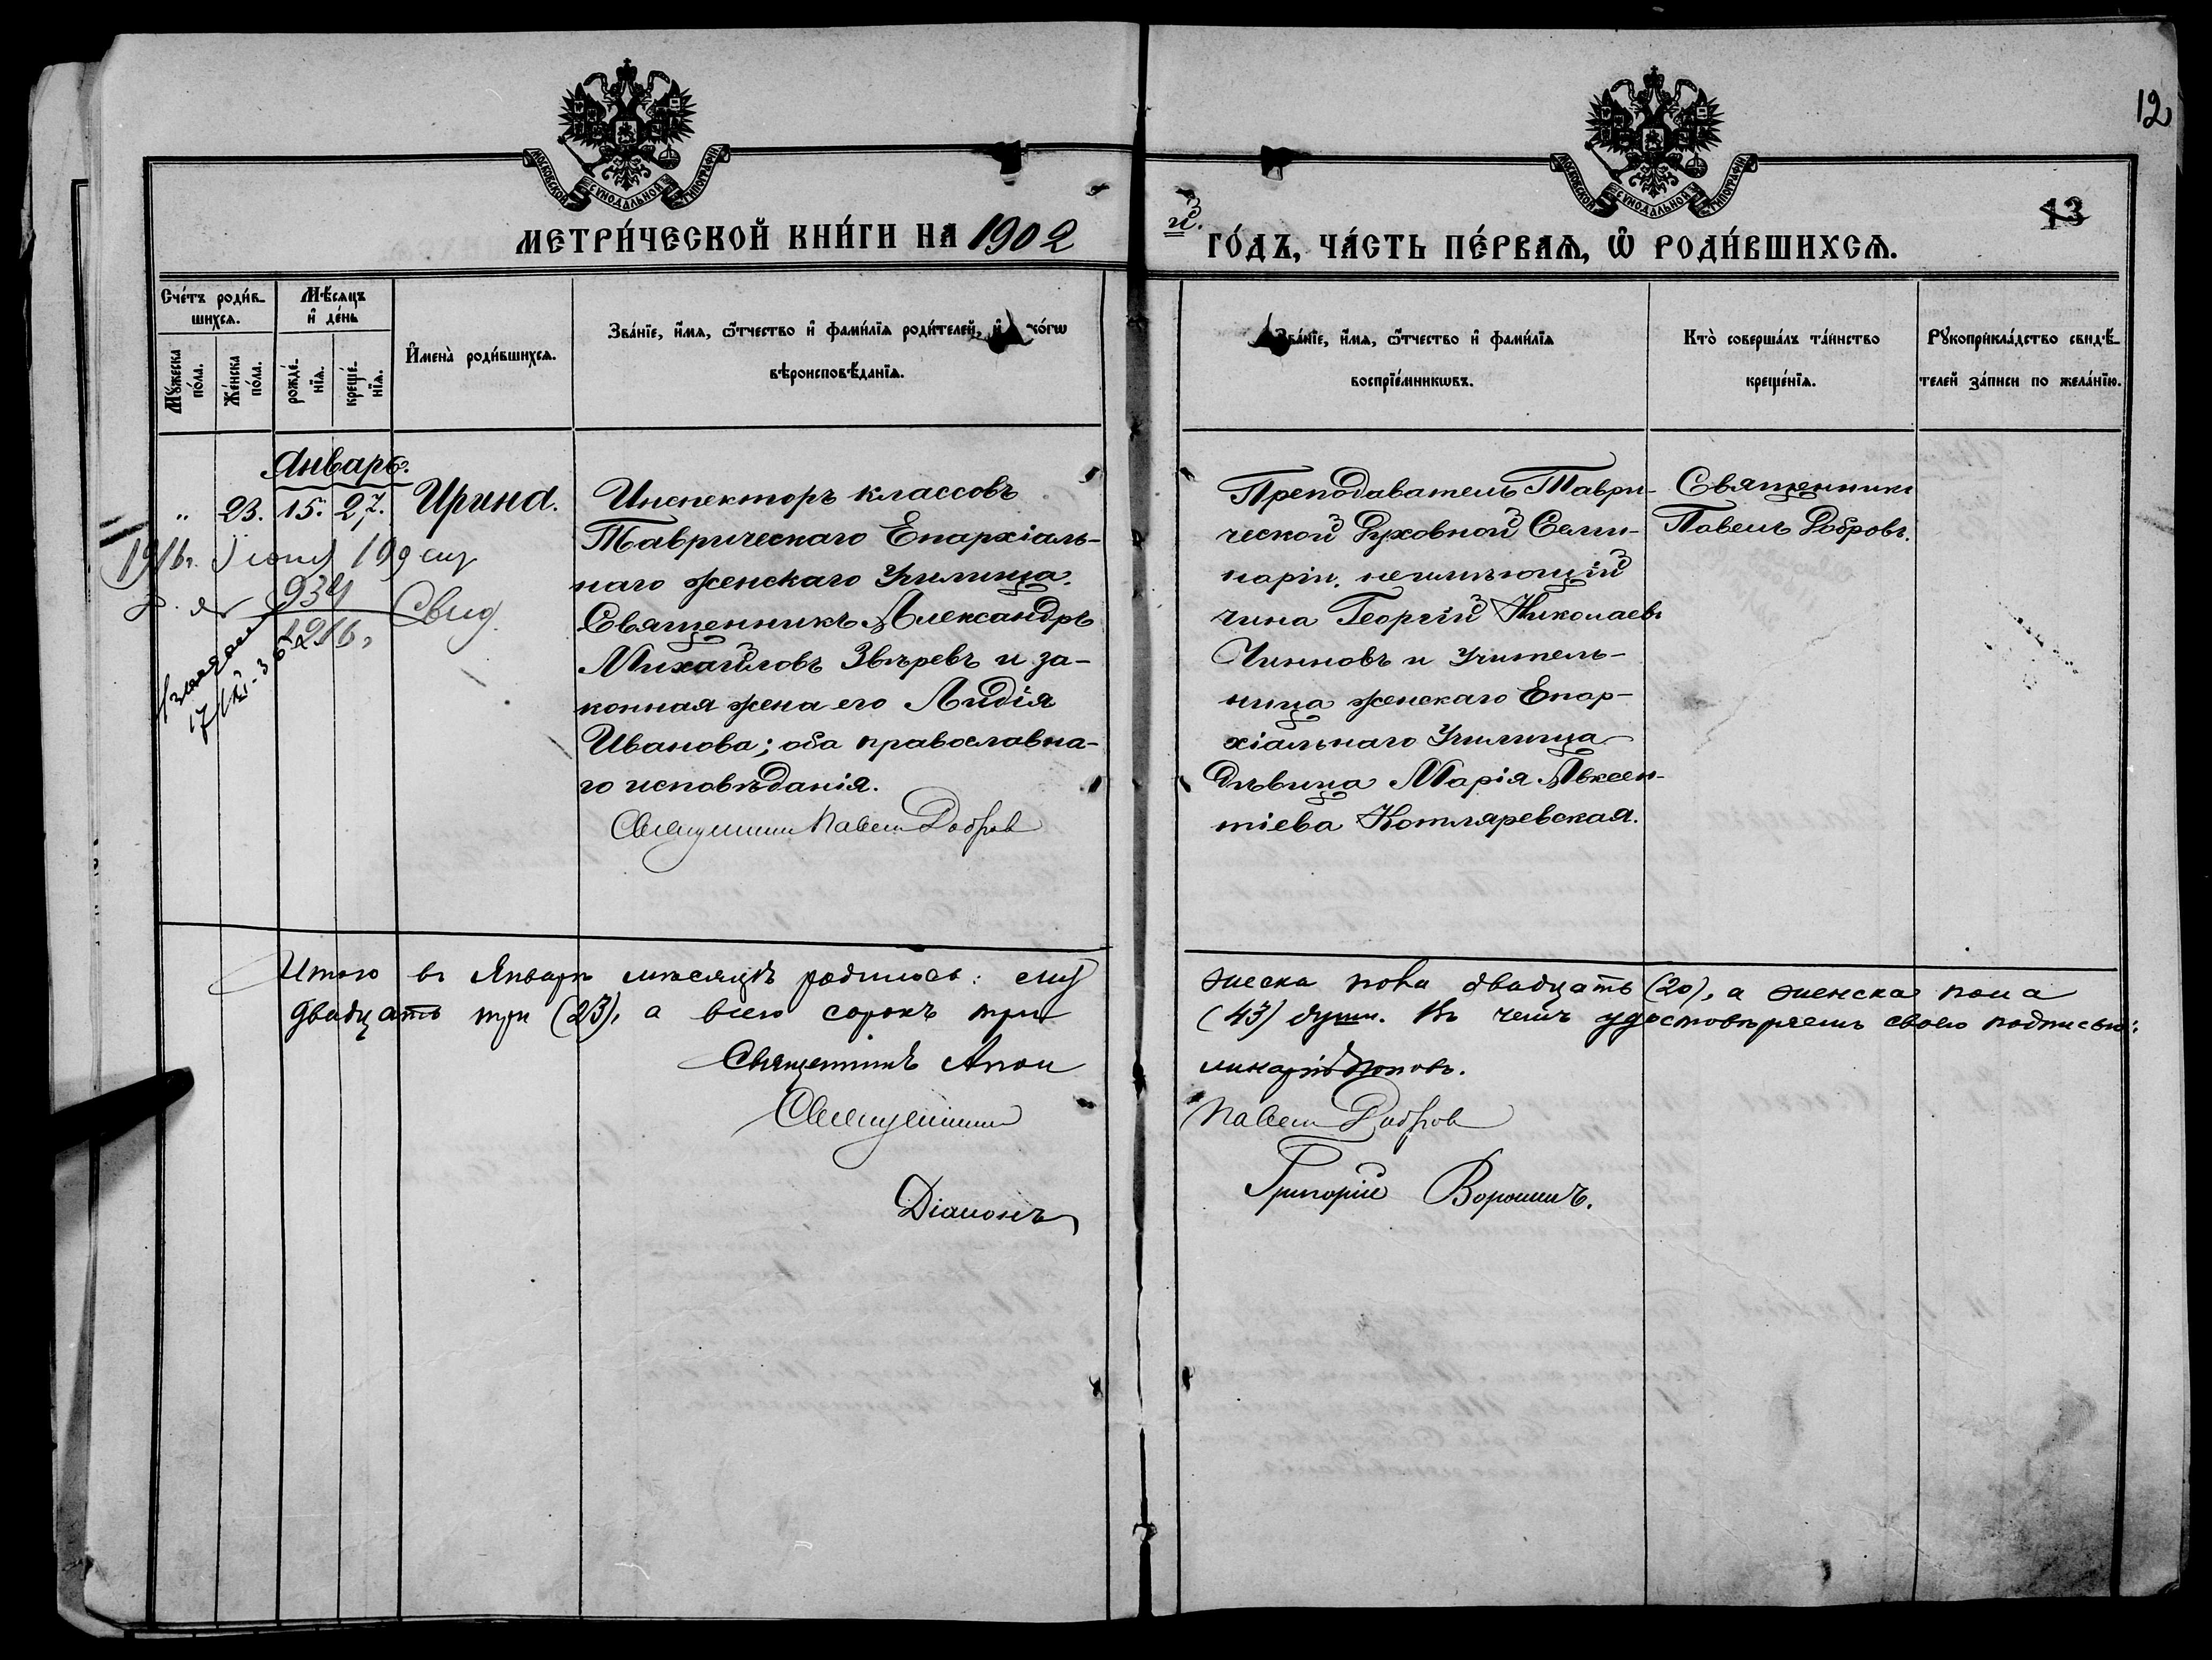 12
МОСКОВСКОЙ СѴНОДАЛЬНОЙ ТИПОГРАФІИ
МОСКОВСКОЙ СѴНОДАЛЬНОЙ ТИПОГРАФІИ
13
МЕТРИ́ЧЕСКОЙ КНИ́ГИ НА 1902
й.
ГО́ДЪ, ЧА́СТЬ ПЕ́РВАѦ, Ѡ҆ РОДИ́ВШИХСѦ.
Сче́тъ роди́в-
шихсѧ.
Мѣ́сѧцъ
и҆ де́нь
Мꙋ́жеска
по́ла.
Же́нска
по́ла.
рожде́-
нїѧ.
креще́-
нїѧ.
И҆мена̀ роди́вшихсѧ.
Зва́нїе, и҆́мѧ, ѻ҆́тчество и҆ фами́лїѧ роди́телей, и҆ ко́гѡ
вѣроисповѣ́данїѧ.
Зва́нїе, и҆́мѧ, ѻ҆́тчество и҆ фами́лїѧ
воспрїе́мникѡвъ.
Кто̀ соверша́лъ та́инство
креще́нїѧ.
Рꙋкоприкла́дство свидѣ́-
телей за́писи по жела́нїю.
Январь.
„ 23. 15. 27. Ирина.
Инспекторъ классовъ
Таврическаго Епархіаль-
наго женскаго Училища.
Священникъ Александръ
Михайловъ Звѣревъ и за-
конная жена его Лидія
Иванова; оба православна-
го исповѣданія.
Священникъ Павелъ Добровъ
1916г. Iюня 19
934
1916г
Свид.
Преподаватель Таври-
ческой Духовной Семи-
наріи. неимѣющій
чина Георгій Николаевъ
Чинновъ и Учитель-
ница женскаго Епар-
хіальнаго Училища
дѣвица Марія Авксен-
тіева Котляревская.
Священникъ
Павелъ Добровъ.
Итого въ Январѣ мѣсяцѣ родилось: муж
жеска пола двадцать (20), а женска пола
двадцать три (23), а всего сорокъ три
(43) души. Въ чемъ удостовѣряемъ своею подписью:
Священникъ Апол
линарій Поповъ.
Священникъ
Павелъ Добровъ
Діаконъ
Григорій Ворошинъ.